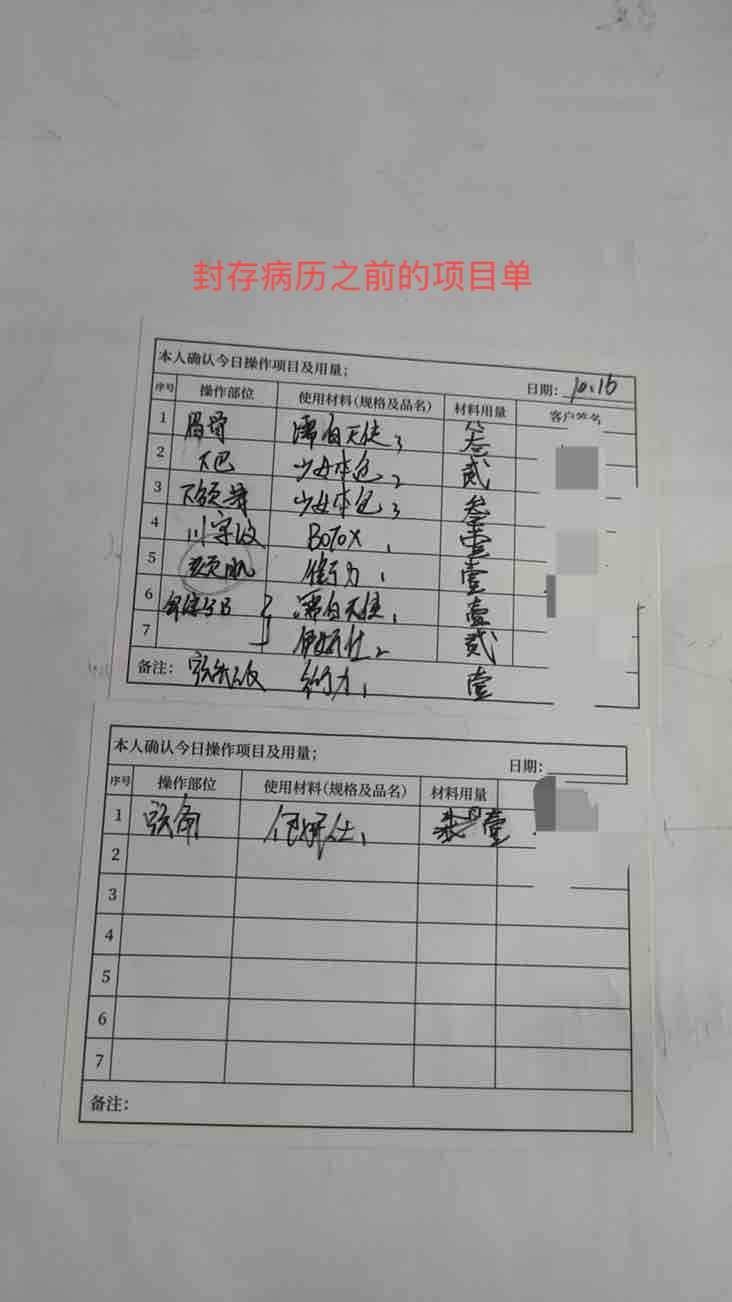 封存病历之前的项目单
本人确认今日操作项目及用量;
日期: 10.16
序号 操作部位 使用材料(规格及品名) 材料用量 客户签名
1 眉骨 濡白天使 3 叁
2 下巴 少女 2 贰
3 下颌 少女 3 叁
4 川字纹 BOTOX 1 壹
5 1 壹
6 濡白天使 1 壹
7 伊妍仕 2 贰
备注: 1 壹
本人确认今日操作项目及用量;
日期:
序号 操作部位 使用材料(规格及品名) 材料用量
1 伊妍仕 1 壹
2
3
4
5
6
7
备注: